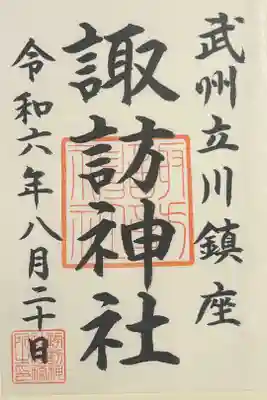 武州立川鎮座
諏訪神社
令和六年八月二十日